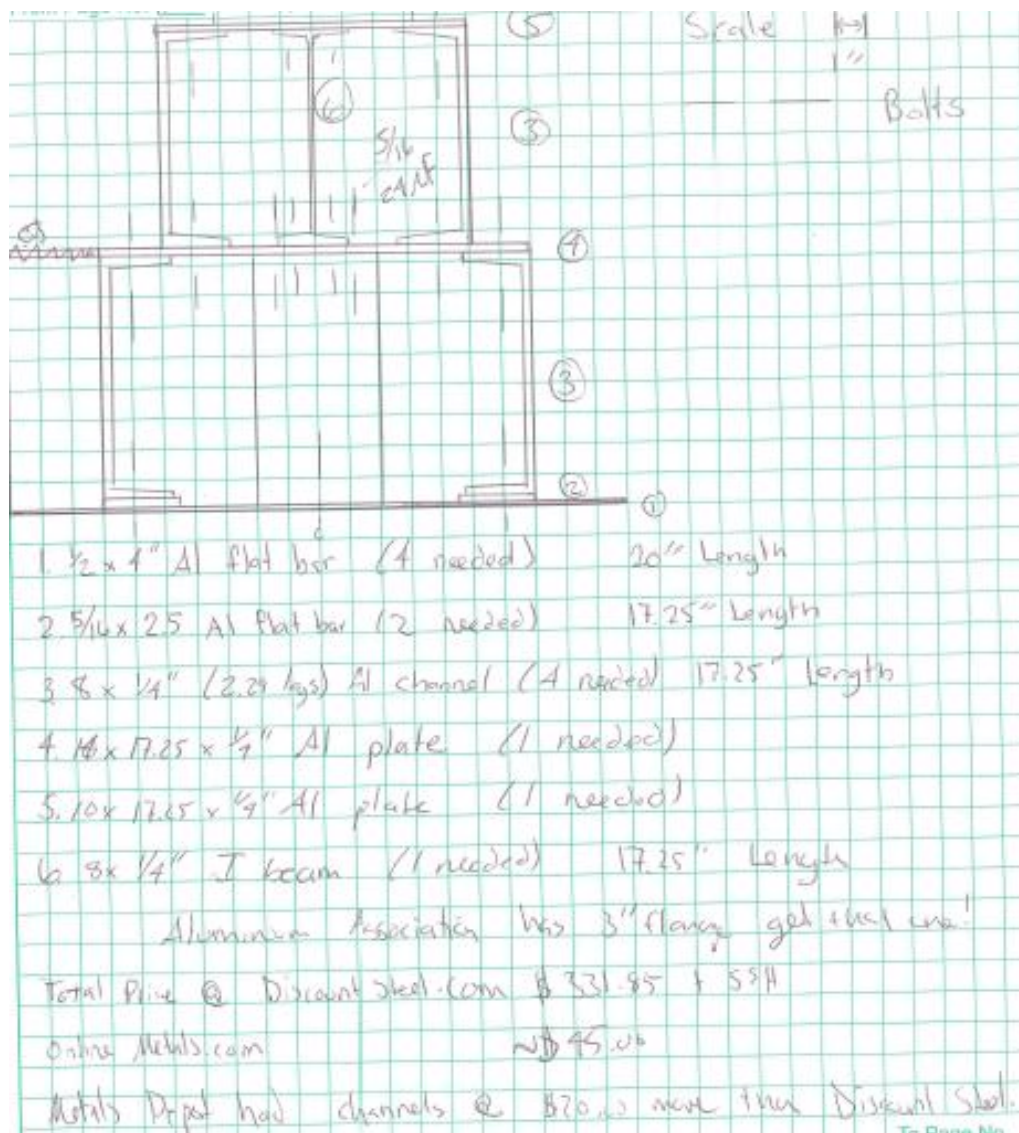 5
Scale
1"
6
Bolts
3
5/16
4
3
2
1
1. 1/2 x 4" Al flat bar (4 needed) 20" Length
2. 5/16 x 2.5 Al flat bar (2 needed) 17.25" Length
3. 8 x 1/4" (2.29 legs) Al channel (4 needed) 17.25" Length
4. 14 x 17.25 x 1/4" Al plate (1 needed)
5. 10 x 17.25 x 1/4" Al plate (1 needed)
6. 8 x 1/4" I beam (1 needed) 17.25" Length
Aluminum Association has 3" flang get that one!
Total Price @ Discount Steel.com $ 331.85 + S&H
Online Metals.com
Metals Depot had channels @ $20.00 more than Discount Steel.
To Page No.